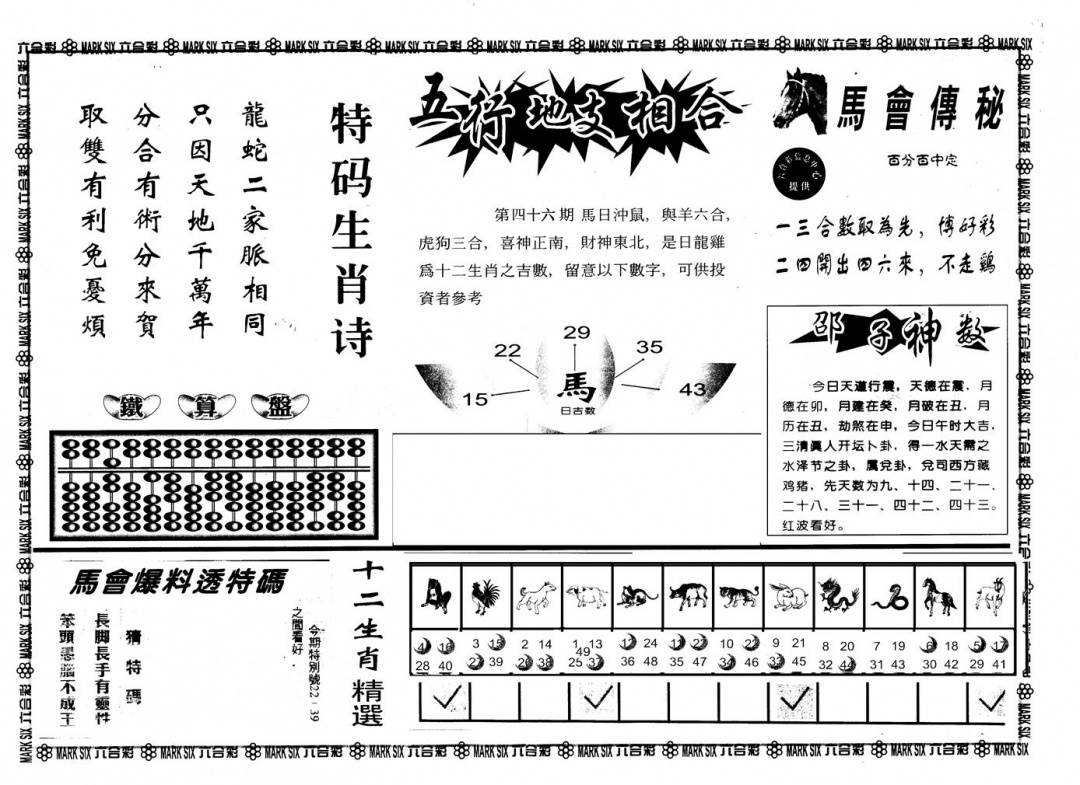 六合彩 MARK SIX 六合彩 MARK SIX 六合彩 MARK SIX 六合彩 MARK SIX 六合彩 MARK SIX 六合彩 MARK SIX 六合彩 MARK SIX 六合彩 MARK SIX 六合彩 MARK SIX 六合彩 MARK SIX
特码生肖诗
龍蛇二家脈相同
只因天地千萬年
分合有術分來賀
取雙有利免憂煩
鐵算盤
五行地支相合
第四十六期 馬日沖鼠，與羊六合，
虎狗三合，喜神正南，財神東北，是日龍雞
爲十二生肖之吉數，留意以下數字，可供投
資者參考
15 22 29 35 43
馬
日吉数
馬會傳秘
百分百中定
六合彩信息中心
提供
一三合數取為先，博好彩
二四開出四六來，不走鷄
邵子神数
今日天道行震，天德在震、月
德在卯，月建在癸，月破在丑、月
历在丑，劫煞在申，今日午时大吉，
三清真人开坛卜卦，得一水天需之
水泽节之卦，属兌卦，兌司西方藏
鸡猪，先天数为九、十四、二十一、
二十八、三十一、四十二、四十三。
红波看好。
馬會爆料透特碼
今期特別號22－39
之間看好．
猜特碼
長脚長手有靈性
笨頭悪腦不成王
十二生肖精選
4 16 3 15 2 14 1 13 12 24 11 23 10 22 9 21 8 20 7 19 6 18 5 17
49
28 40 27 39 26 38 25 37 36 48 35 47 34 46 33 45 32 44 31 43 30 42 29 41
MARK SIX 六合彩 MARK SIX 六合彩 MARK SIX 六合彩 MARK SIX 六合彩 MARK SIX 六合彩 MARK SIX 六合彩 MARK SIX 六合彩 MARK SIX 六合彩 MARK SIX 六合彩 MARK SIX